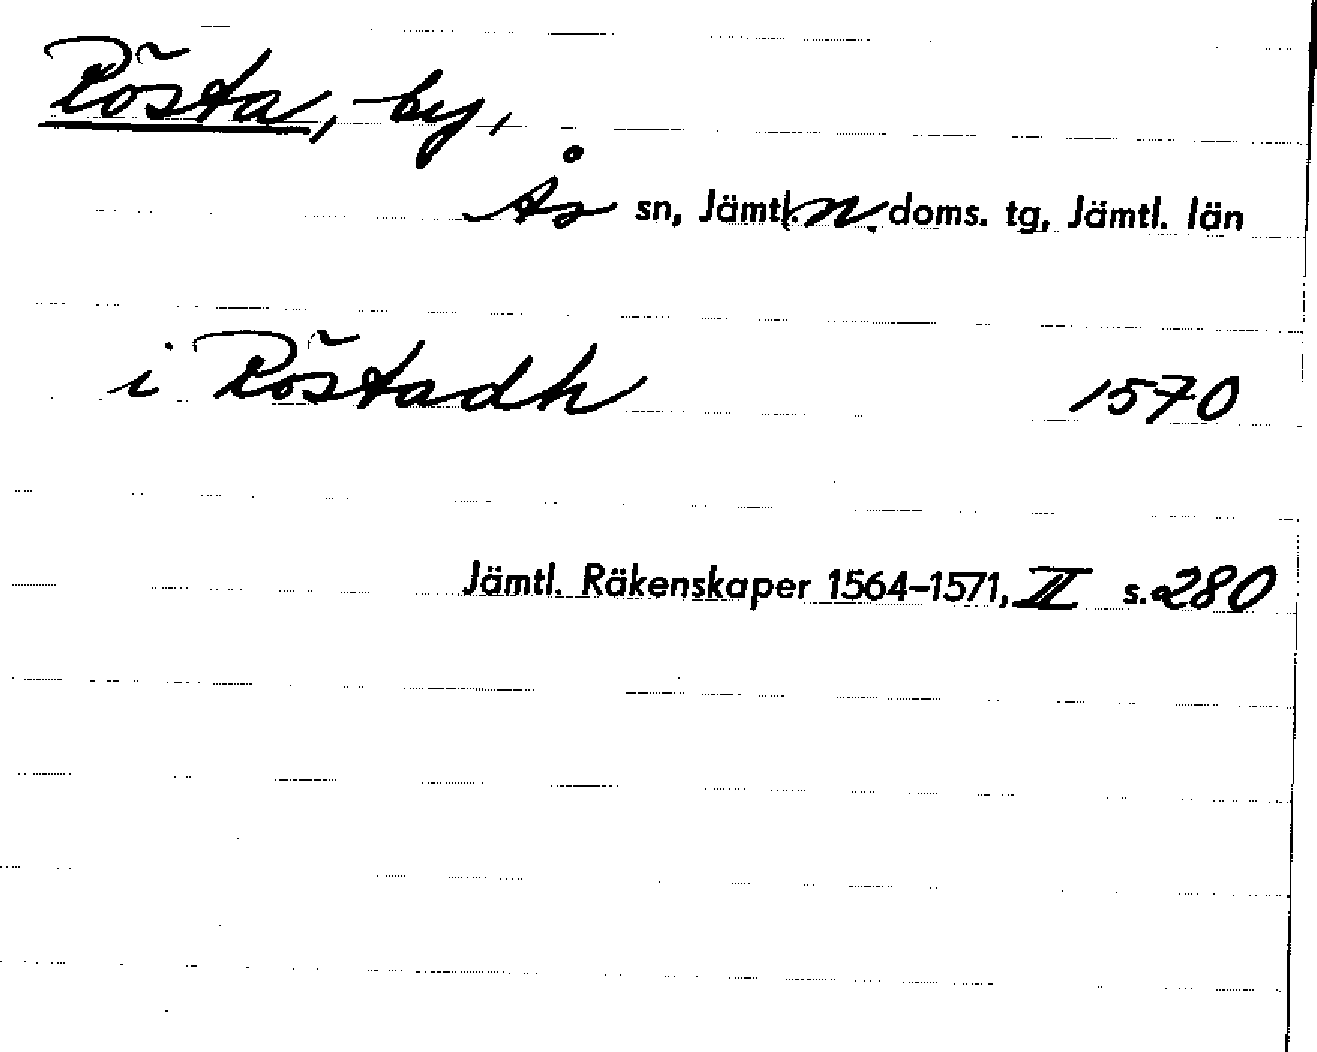 Rösta, by,
Ås sn, Jämtl. n. doms. tg, Jämtl. län
i Röstadh 1570
Jämtl. Räkenskaper 1564-1571, II s. 280